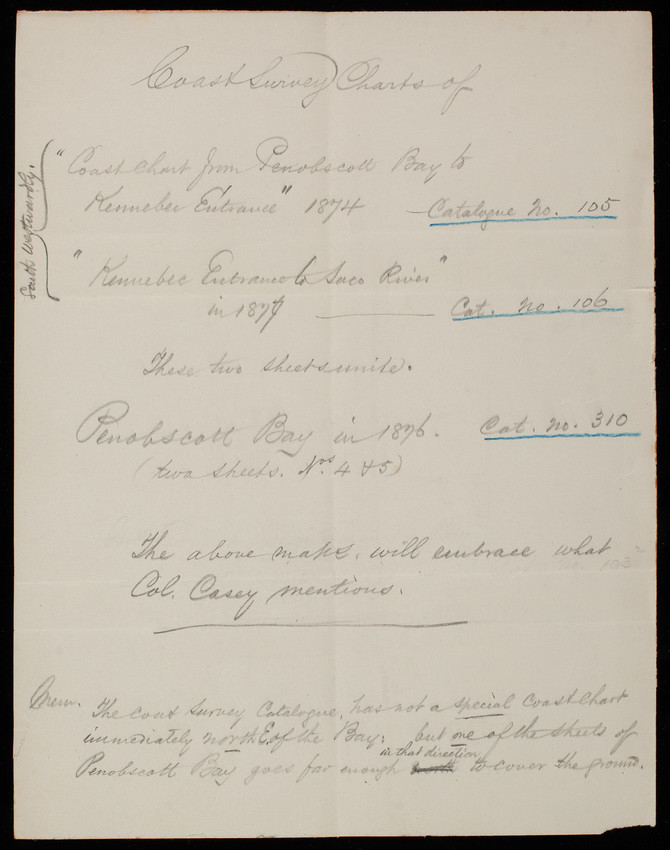 Coast Survey Charts of
South Westwardly.
"Coast Chart from Penobscott Bay to
Kennebec Entrance" 1874 — Catalogue No. 105
"Kennebec Entrance to Saco River"
in 187 — Cat. No. 106
These two sheets unite.
Penobscott Bay in 1876. Cat. No. 310
(two sheets. Nos 4 & 5)
The above maps, will embrace what
Col. Casey mentions.
Mem. The Coast Survey Catalogue, has not a special Coast Chart
immediately north E. of the Bay; but one of the sheets of
in that direction
Penobscott Bay goes far enough to cover the ground.